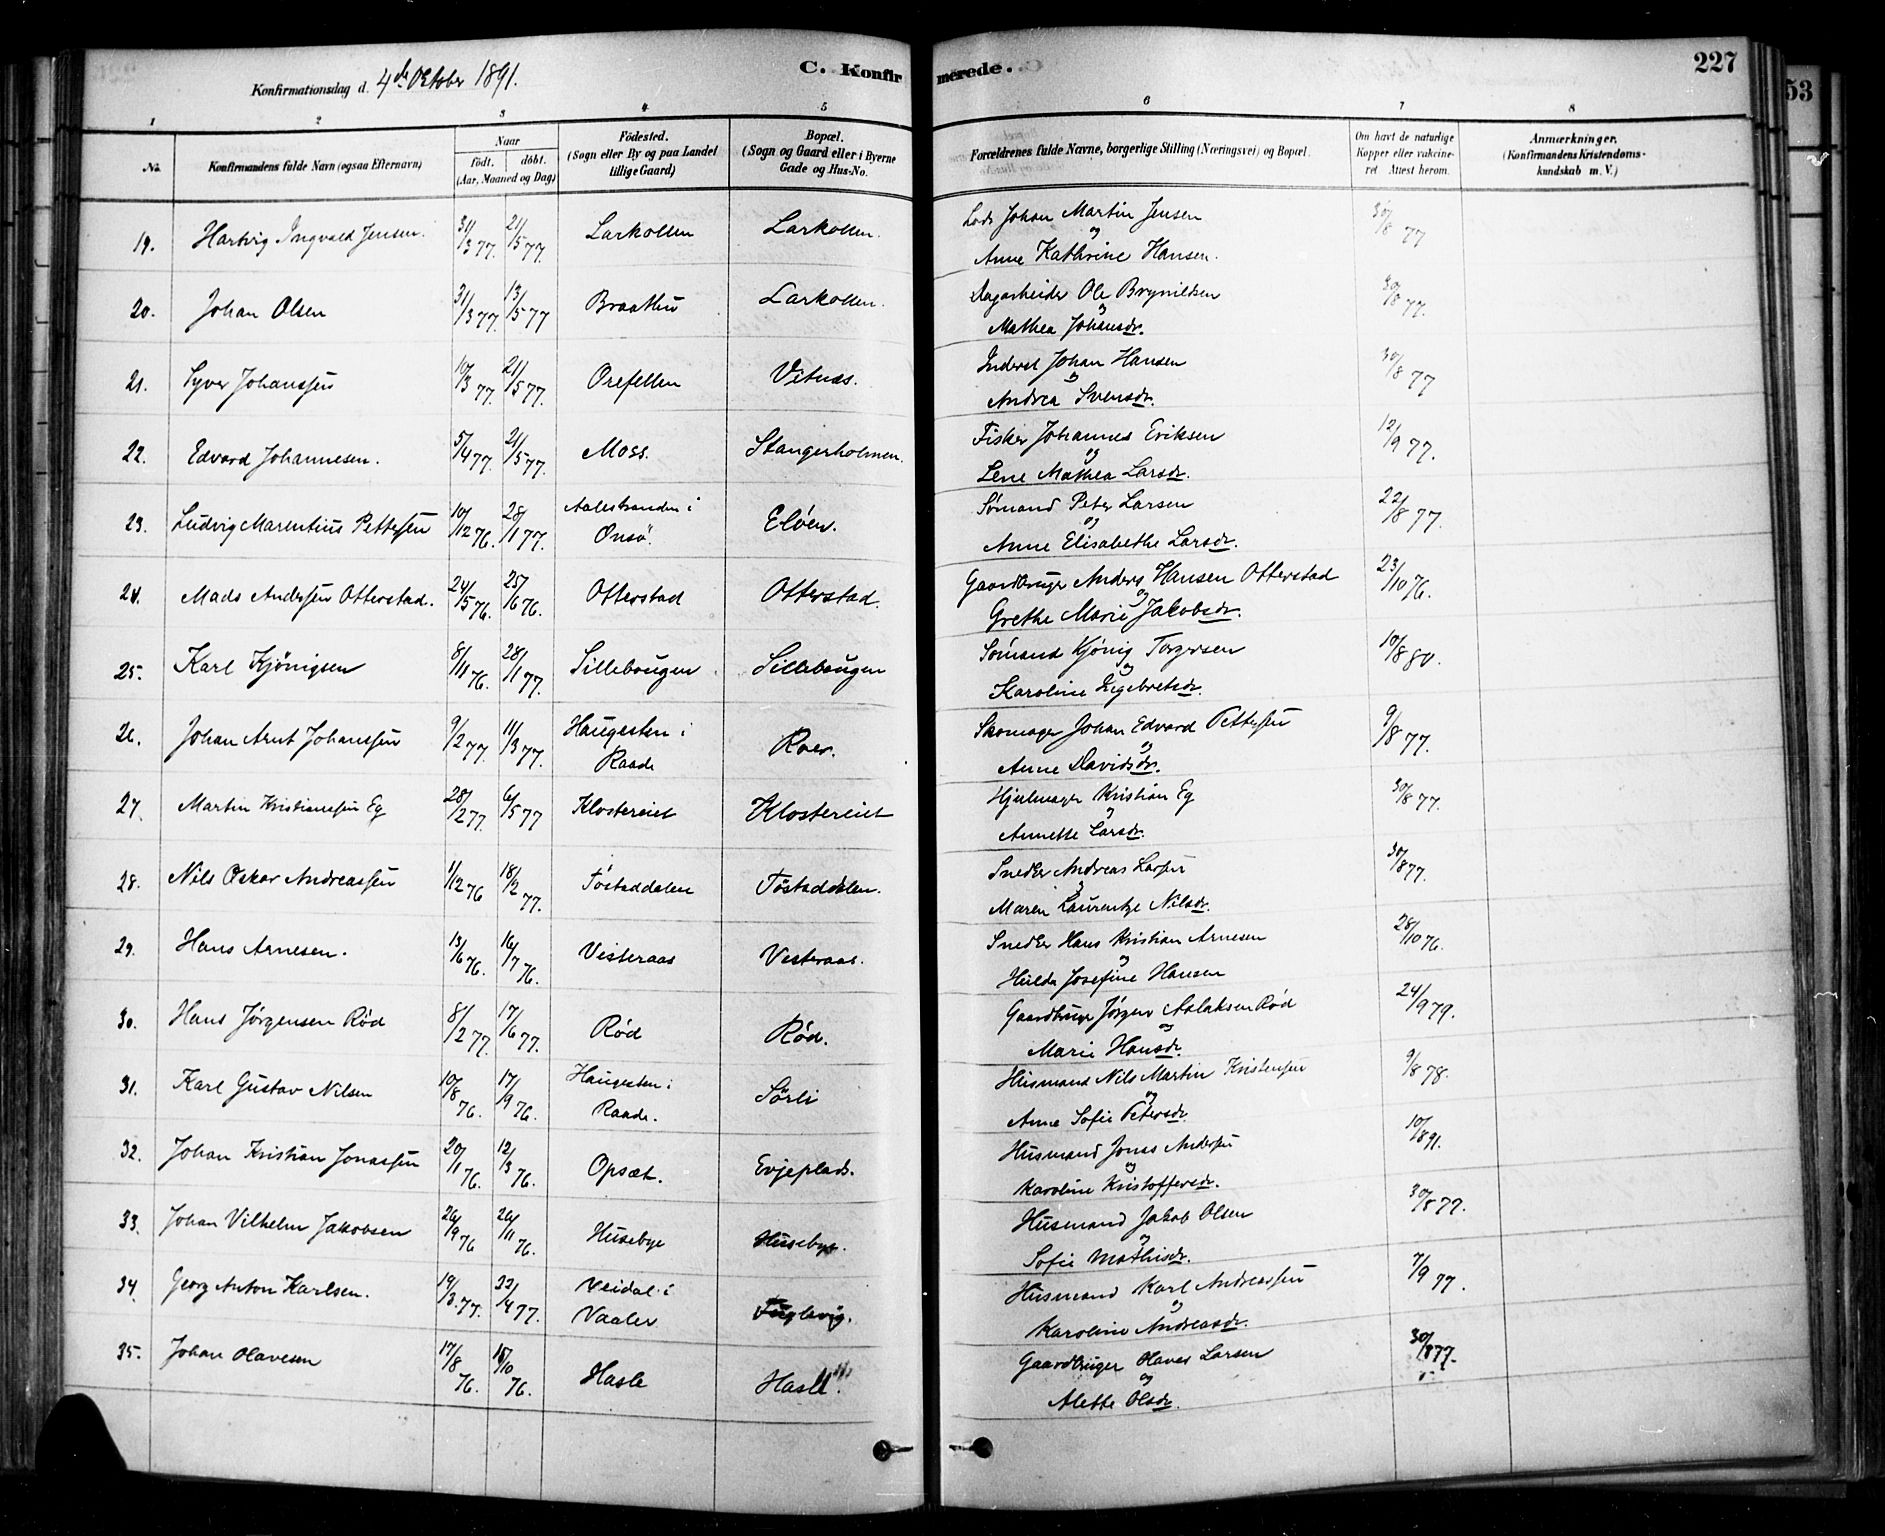 227
53
Konfirmationsdag d. 4de October 1891.
C. Konfirmerede.
1 2 3 4 5 6 7 8
No. Konfirmandens fulde Navn (ogsaa Efternavn) Naar født. døbt. (Aar, Maaned og Dag) Födested. (Sogn eller By og paa Landet tillige Gaard) Bopæl. (Sogn og Gaard eller i Byerne Gade og Hus-No. Forældrenes fulde Navne, borgerlige Stilling (Næringsvei) og Bopæl. Om havt de naturlige Kopper eller vaccineret Attest herom. Anmærkninger. (Konfirmandens Kristendomskundskab m. V.)
19. Hartvig Ingvald Jensen. 31/3 77. 21/5 77. Larkollen Larkollen. Lods Johan Martin Jensen 30/8 77
og
Anne Kathrine Hansen.
20. Johan Olsen 31/3 77. 13/5 77 Braathu Larkollen. Dagarbeider Ole Brynildsen 30/8 77.
og
Mathea Johansdr.
21. Syver Johanssen 10/3 77. 21/5 77. Orefellen Vitnæs. Inderst Johan Hansen 30/8 77
og
Andrea Svensdr.
22. Edvard Johannesen. 5/4 77. 21/5 77. Moss. Stangerholmen. Fisker Johannes Eriksen 12/9 77.
og
Lene Mathea Larsdr.
23. Ludvig Marentius Pettersen 10/12 76. 28/1 77. Aalestranden i Onsö. Elöen. Sömand Peter Larsen 22/8 77.
og
Anne Elisabethe Larsdr.
24. Mads Andersen Otterstad. 24/5 76. 25/6 76. Otterstad Otterstad. Gaardbruger Anders Hansen Otterstad 23/10 76.
og
Grethe Marie Jakobsdr.
25. Karl Kjönigsen 8/11 76. 28/1 77. Sillebaugen Sillebaugen Sömand Kjönig Torgersen 10/8 80.
og
Karoline Ingebretsdr.
26. Johan Arnt Johanssen 9/2 77. 11/3 77. Haugesten i Raade Roer. Skomager Johan Edvard Pettersen 9/8 77.
og
Anne Davidsdr.
27. Martin Kristianssen Eg 28/2 77. 6/5 77 Klostereiet Klostereiet Hjulmager Kristian Eg 30/8 77.
og
Annette Larsdr.
28. Nils Oskar Andreassen 1/12 76 18/2 77. Töstaddalen Töstaddalen. Snedker Andreas Larsen 30/8 77.
og
Maren Laurentze Nilsdr.
29. Hans Arnesen. 13/6 76. 16/7 76. Visteraas Vesteraas. Snedker Hans Kristian Arnesen 28/10 76.
og
Hulda Josefine Hansen
30. Hans Jørgensen Rød 8/2 77. 17/6 77. Rød Rød. Gaardbruger Jørgen Aslaksen Rød 24/9 79.
og
Marie Hansdr.
31. Karl Gustav Nilsen 10/8 76. 17/9 76. Haugesten i Raade. Sörli Husmand Nils Martin Kristensen 9/8 78.
og
Anne Sofie Petersdr
32. Johan Kristian Jonassen 20/1 76. 12/3 76. Opsæt. Evjeplads. Husmand Jonas Andersen 10/8 91.
og
Karoline Kristoffersdr.
33. Johan Vilhelm Jakobsen 26/9 76 26/11 76. Husebye Husebye. Husmand Jakob Olsen 30/8 77.
og
Sofie Mathisdr.
34. Georg Anton Karlsen. 19/3 77. 22/4 77. Veidal i Vaaler Fuglevig. Husmand Karl Andreassen 7/9 77.
og
Karoline Andreasdr.
35. Johan Olavesen 17/8 76. 15/10 76. Hasle Hasle. Gaardbruger Olaves Larsen 30/8 77.
og
Alette Olsdr.